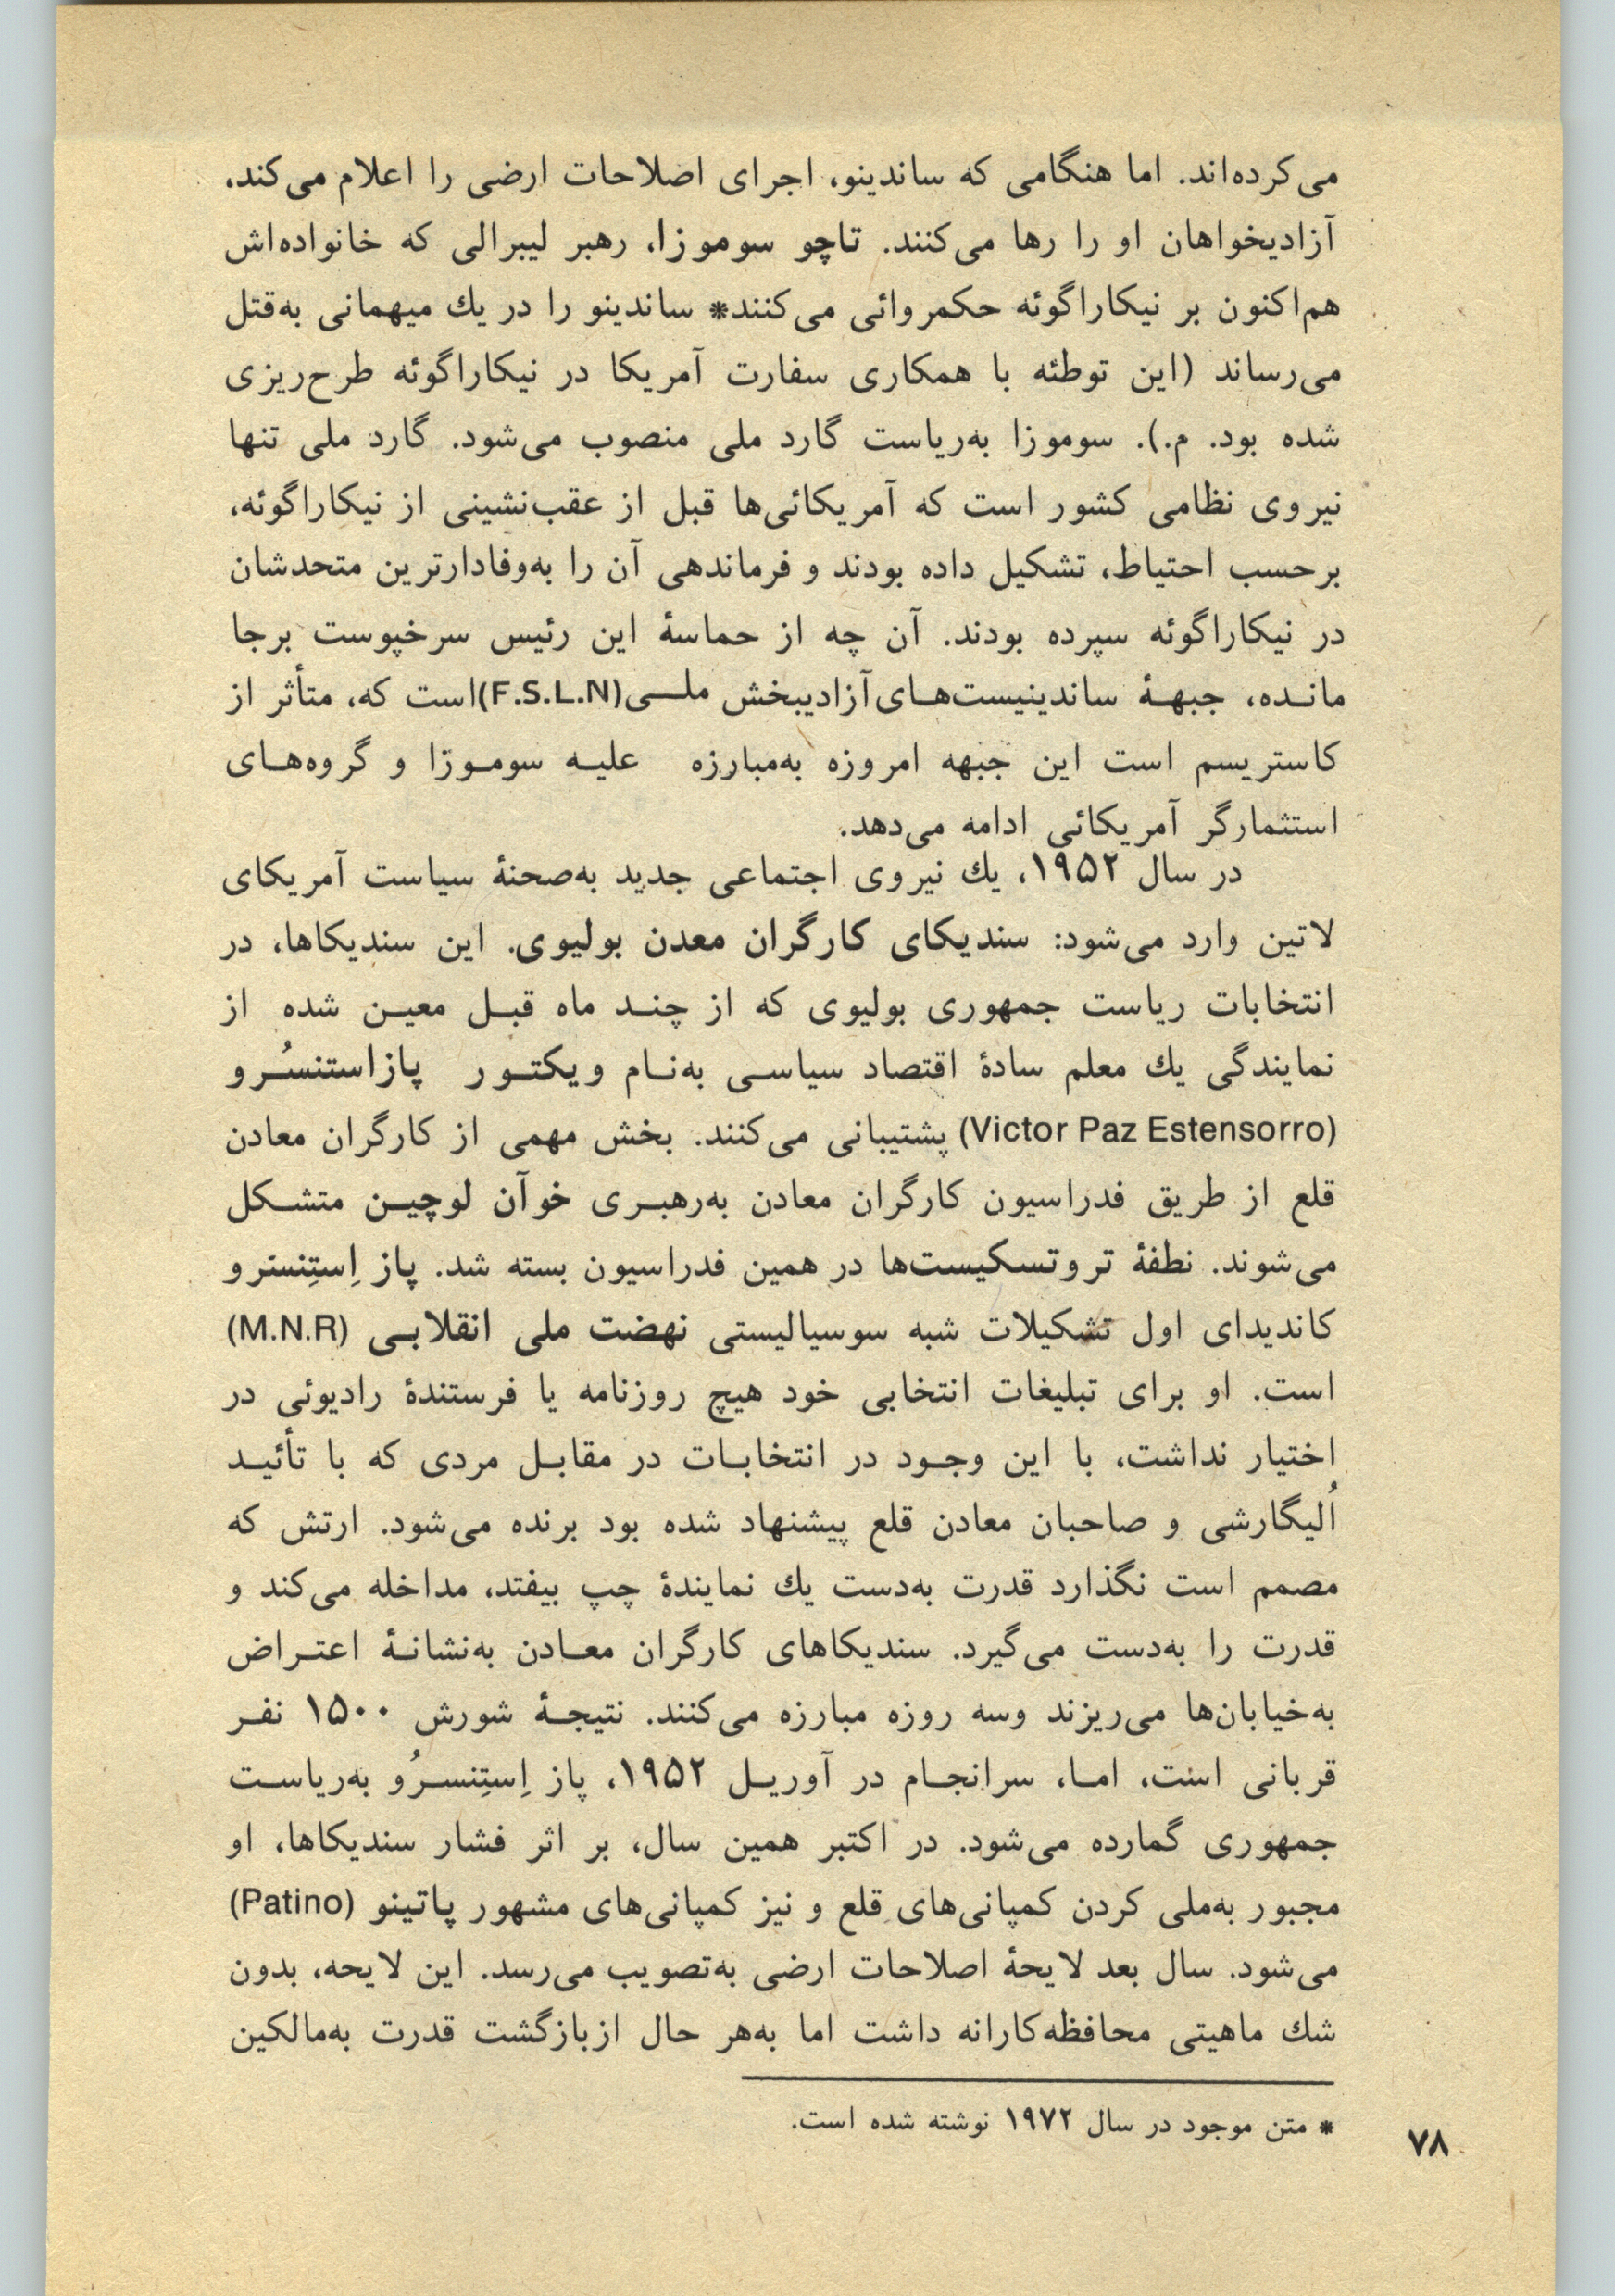 می‌کرده‌اند. اما هنگامی که ساندینو، اجرای اصلاحات ارضی را اعلام می‌کند،
آزادیخواهان او را رها می‌کنند. تاچو سوموزا، رهبر لیبرالی که خانواده‌اش
هم‌اکنون بر نیکاراگوئه حکمروائی می‌کنند* ساندینو را در یك میهمانی به‌قتل
می‌رساند (این توطئه با همکاری سفارت آمریکا در نیکاراگوئه طرح‌ریزی
شده بود. م.). سوموزا به‌ریاست گارد ملی منصوب می‌شود. گارد ملی تنها
نیروی نظامی کشور است که آمریکائی‌ها قبل از عقب‌نشینی از نیکاراگوئه،
برحسب احتیاط، تشکیل داده بودند و فرماندهی آن را به‌وفادارترین متحدشان
در نیکاراگوئه سپرده بودند. آن چه از حماسهٔ این رئیس سرخپوست برجا
مانده، جبههٔ ساندینیست‌های آزادیبخش ملی (F.S.L.N) است که، متأثر از
کاستریسم است این جبهه امروزه به‌مبارزه علیه سوموزا و گروه‌های
استثمارگر آمریکائی ادامه می‌دهد.
در سال ۱۹۵۲، یك نیروی اجتماعی جدید به‌صحنهٔ سیاست آمریکای
لاتین وارد می‌شود: سندیکای کارگران معدن بولیوی. این سندیکاها، در
انتخابات ریاست جمهوری بولیوی که از چند ماه قبل معین شده از
نمایندگی یك معلم سادهٔ اقتصاد سیاسی به‌نام ویکتور پازاستنسُرو
(Victor Paz Estensorro) پشتیبانی می‌کنند. بخش مهمی از کارگران معادن
قلع از طریق فدراسیون کارگران معادن به‌رهبری خوآن لوچین متشکل
می‌شوند. نطفهٔ تروتسکیست‌ها در همین فدراسیون بسته شد. پاز اِستِنسترو
کاندیدای اول تشکیلات شبه سوسیالیستی نهضت ملی انقلابی (M.N.R)
است. او برای تبلیغات انتخابی خود هیچ روزنامه یا فرستندهٔ رادیوئی در
اختیار نداشت، با این وجود در انتخابات در مقابل مردی که با تأئید
اُلیگارشی و صاحبان معادن قلع پیشنهاد شده بود برنده می‌شود. ارتش که
مصمم است نگذارد قدرت به‌دست یك نمایندهٔ چپ بیفتد، مداخله می‌کند و
قدرت را به‌دست می‌گیرد. سندیکاهای کارگران معادن به‌نشانهٔ اعتراض
به‌خیابان‌ها می‌ریزند وسه روزه مبارزه می‌کنند. نتیجهٔ شورش ۱۵۰۰ نفر
قربانی است، اما، سرانجام در آوریل ۱۹۵۲، پاز اِستِنسرُو به‌ریاست
جمهوری گمارده می‌شود. در اکتبر همین سال، بر اثر فشار سندیکاها، او
مجبور به‌ملی کردن کمپانی‌های قلع و نیز کمپانی‌های مشهور پاتینو (Patino)
می‌شود. سال بعد لایحهٔ اصلاحات ارضی به‌تصویب می‌رسد. این لایحه، بدون
شك ماهیتی محافظه‌کارانه داشت اما به‌هر حال ازبازگشت قدرت به‌مالکین
* متن موجود در سال ۱۹۷۲ نوشته شده است.
۷۸